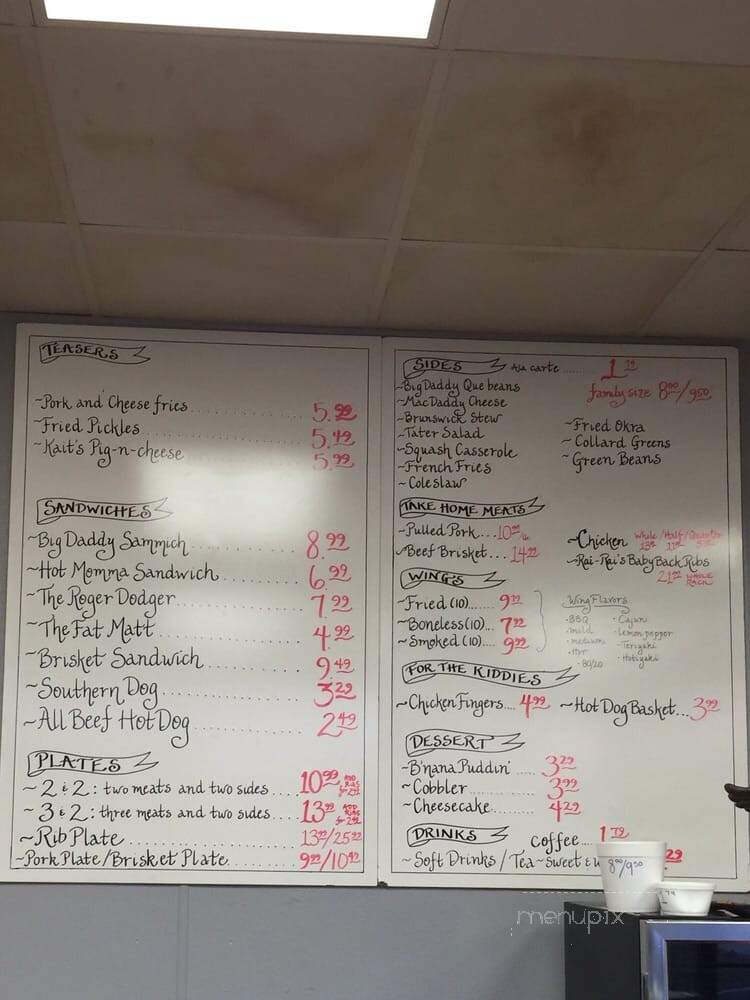 TEASERS
~Pork and Cheese fries 5.99
~Fried Pickles 5.49
~Kait's Pig-n-cheese 5.99
SANDWICHES
~Big Daddy Sammich 8.99
~Hot Momma Sandwich 6.99
~The Roger Dodger 7.99
~The Fat Matt 4.99
~Brisket Sandwich 9.49
~Southern Dog 3.29
~All Beef Hot Dog 2.49
PLATES
~2 & 2: two meats and two sides 10.99 ADD RIBS
~3 & 2: three meats and two sides 13.99 ADD RIBS
~Rib Plate 13.99/25.99
~Pork Plate/Brisket Plate 9.99/10.49
SIDES Ala carte
family size 8.00/9.50
~Big Daddy Que beans
~Mac Daddy Cheese
~Brunswick Stew
~Tater Salad
~Squash Casserole
~French Fries
~Coleslaw
~Fried Okra
~Collard Greens
~Green Beans
TAKE HOME MEATS
~Pulled Pork... 10.00 lb
~Beef Brisket... 14.99
~Chicken Whole/Half/Quarter
~Rai-Rai's Baby Back Ribs
WHOLE RACK
WINGS
~Fried (10) 9.99
~Boneless (10) 7.99
~Smoked (10) 9.99
Wing Flavors
·BBQ
·mild
·medium
·Hot
·80/20
·Cajun
·Lemon pepper
·Teriyaki
·Hotiyaki
FOR THE KIDDIES
~Chicken Fingers.... 4.99 ~Hot Dog Basket... 3.99
DESSERT
~B'nana Puddin' 3.29
~Cobbler 3.99
~Cheesecake 4.29
DRINKS coffee
~Soft Drinks / Tea ~ Sweet &
8.00/9.50
menupix